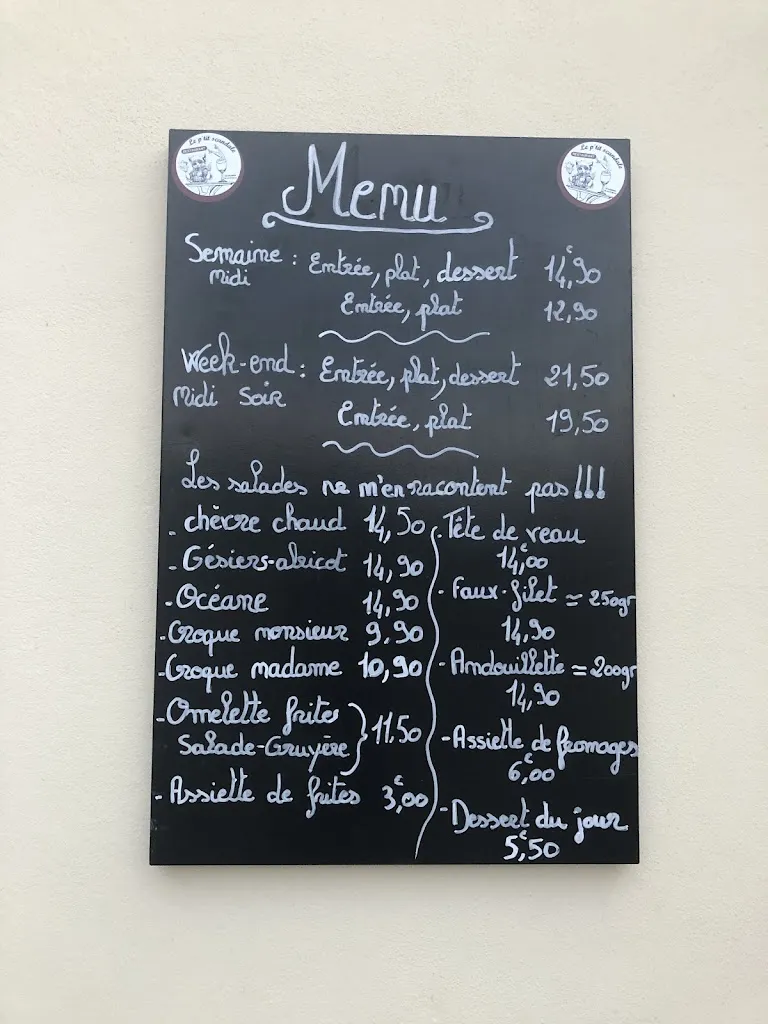 Le p'tit scandale
Le p'tit scandale
Menu
Semaine : Entrée, plat, dessert 14,€90
midi
Entrée, plat 12,90
Week-end : Entrée, plat, dessert 21,50
midi soir
Entrée, plat 19,50
Les salades ne m'en racontent pas !!!
- chèvre chaud 14,50
- Gésiers-abricot 14,90
- Océane 14,90
- Croque monsieur 9.90
- Croque madame 10,90
- Omelette frites
Salade-Gruyère } 11,50
- Assiette de frites 3,€00
- Tête de veau
14,€00
- Faux-filet = 250gr
14,90
- Andouillette = 200gr
14,90
- Assiette de fromages
6,€00
- Dessert du jour
5,€50